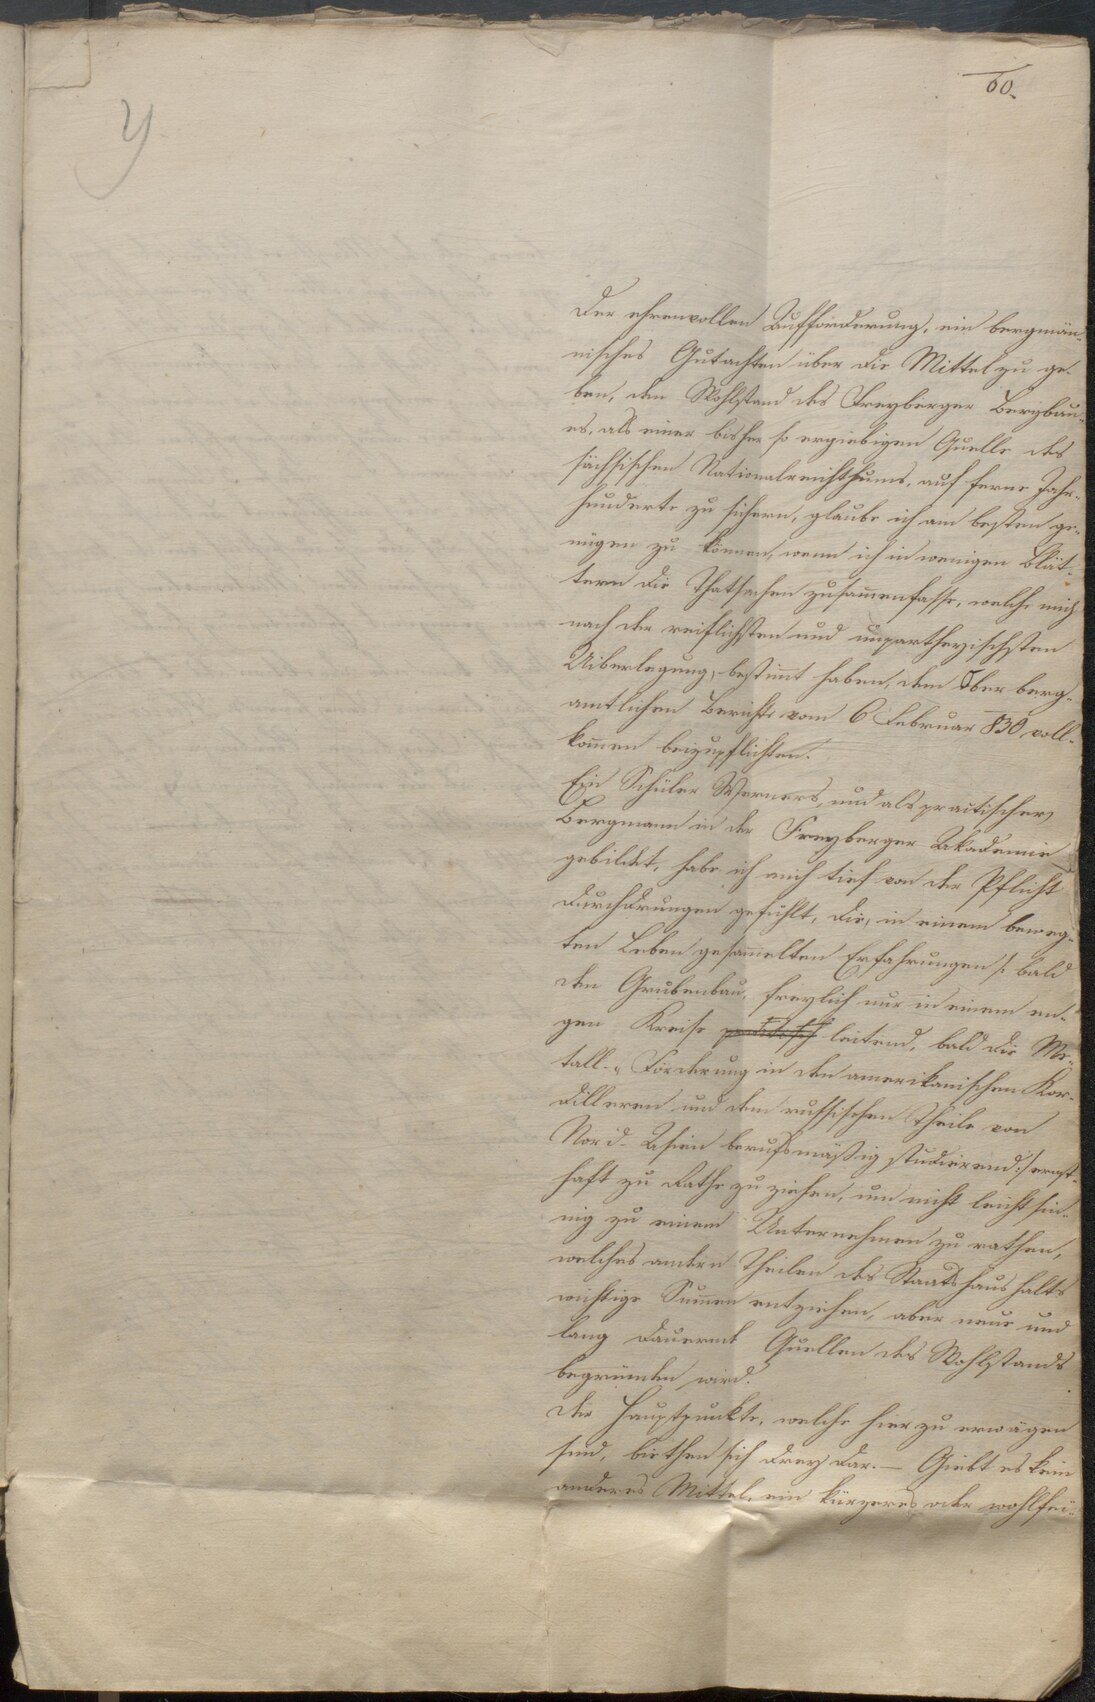 60.
y
Der ehrenvollen Aufforderung, ein bergmän-
nisches Gutachten über die Mittel zu ge-
ben, den Wohlstand des Freyberger Bergbau-
es, als einer bisher so ergiebigen Quelle des
sächsischen Nationalreichthums, auf ferne Jahr-
hunderte zu sichern, glaube ich am besten ge-
nügen zu können, wenn ich in wenigen Blät-
tern die Thatsachen zusammenfasse, welche mich
nach der reiflichsten und unpartheyischsten
Uiberlegung, bestimmt haben, dem Ober berg-
amtlichen Berichte vom 6 Februar 830 voll-
kommen beizupflichten.
Ein Schüler Werners, und als practischer
Bergmann in der Freyberger Akademie
gebildet, habe ich mich tief von der Pflicht
durchdrungen gefühlt, die, in einem beweg-
ten Leben gesammelten Erfahrungen /: bald
den Grubenbau, freylich nur in einem en-
gen Kreise practisch leitend, bald die Me-
tall-Förderung in den amerikanischen Kor-
dilleren und dem russischen Theile von
Nord-Asien berufsmäßig studierend :/ ernst-
haft zu Rathe zu ziehen, um nicht leichtsin-
nig zu einem Unternehmen zu rathen,
welches andern Theilen des Staatshaushalts
wichtige Summen entziehen, aber neue und
lang dauernde Quellen des Wohlstands
begründen wird.
Der Hauptpunkte, welche hier zu erwägen
sind, biethen sich drey dar. — Giebt es kein
anderes Mittel, ein kürzeres oder wohlfei-